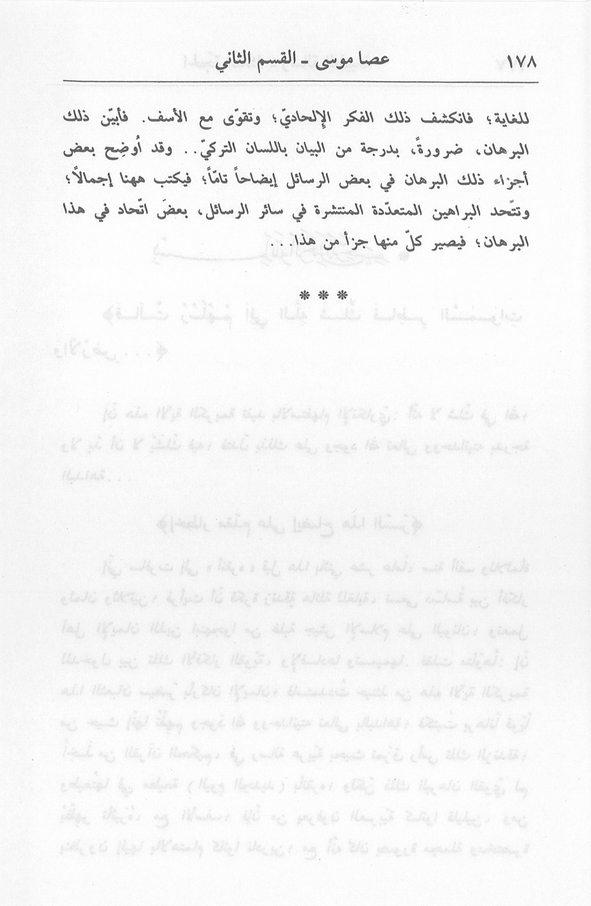 ١٧٨ عصا موسى - القسم الثاني
للغاية؛ فانكشف ذلك الفكر الإلحاديّ؛ وتقوّى مع الأسف. فأبيّن ذلك
البرهان، ضرورةً، بدرجة من البيان باللسان التركيّ.. وقد أُوضِح بعض
أجزاء ذلك البرهان في بعض الرسائل إيضاحاً تامّاً؛ فيكتب ههنا إجمالاً؛
وتتّحد البراهين المتعدّدة المنتشرة في سائر الرسائل، بعضَ اتّحاد في هذا
البرهان؛ فيصير كلّ منها جزأ من هذا...
* * *